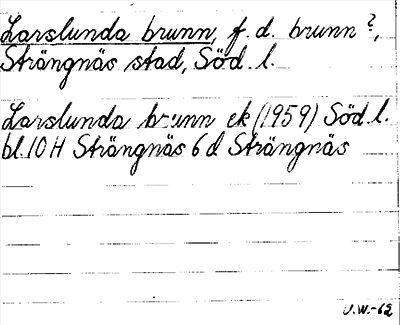 Larslunda brunn, f. d. brunn?,
Strängnäs stad, Söd. l.
Larslunda brunn ek (1959) Söd. l.
bl. 10 H Strängnäs 6 d Strängnäs
U.W.-62